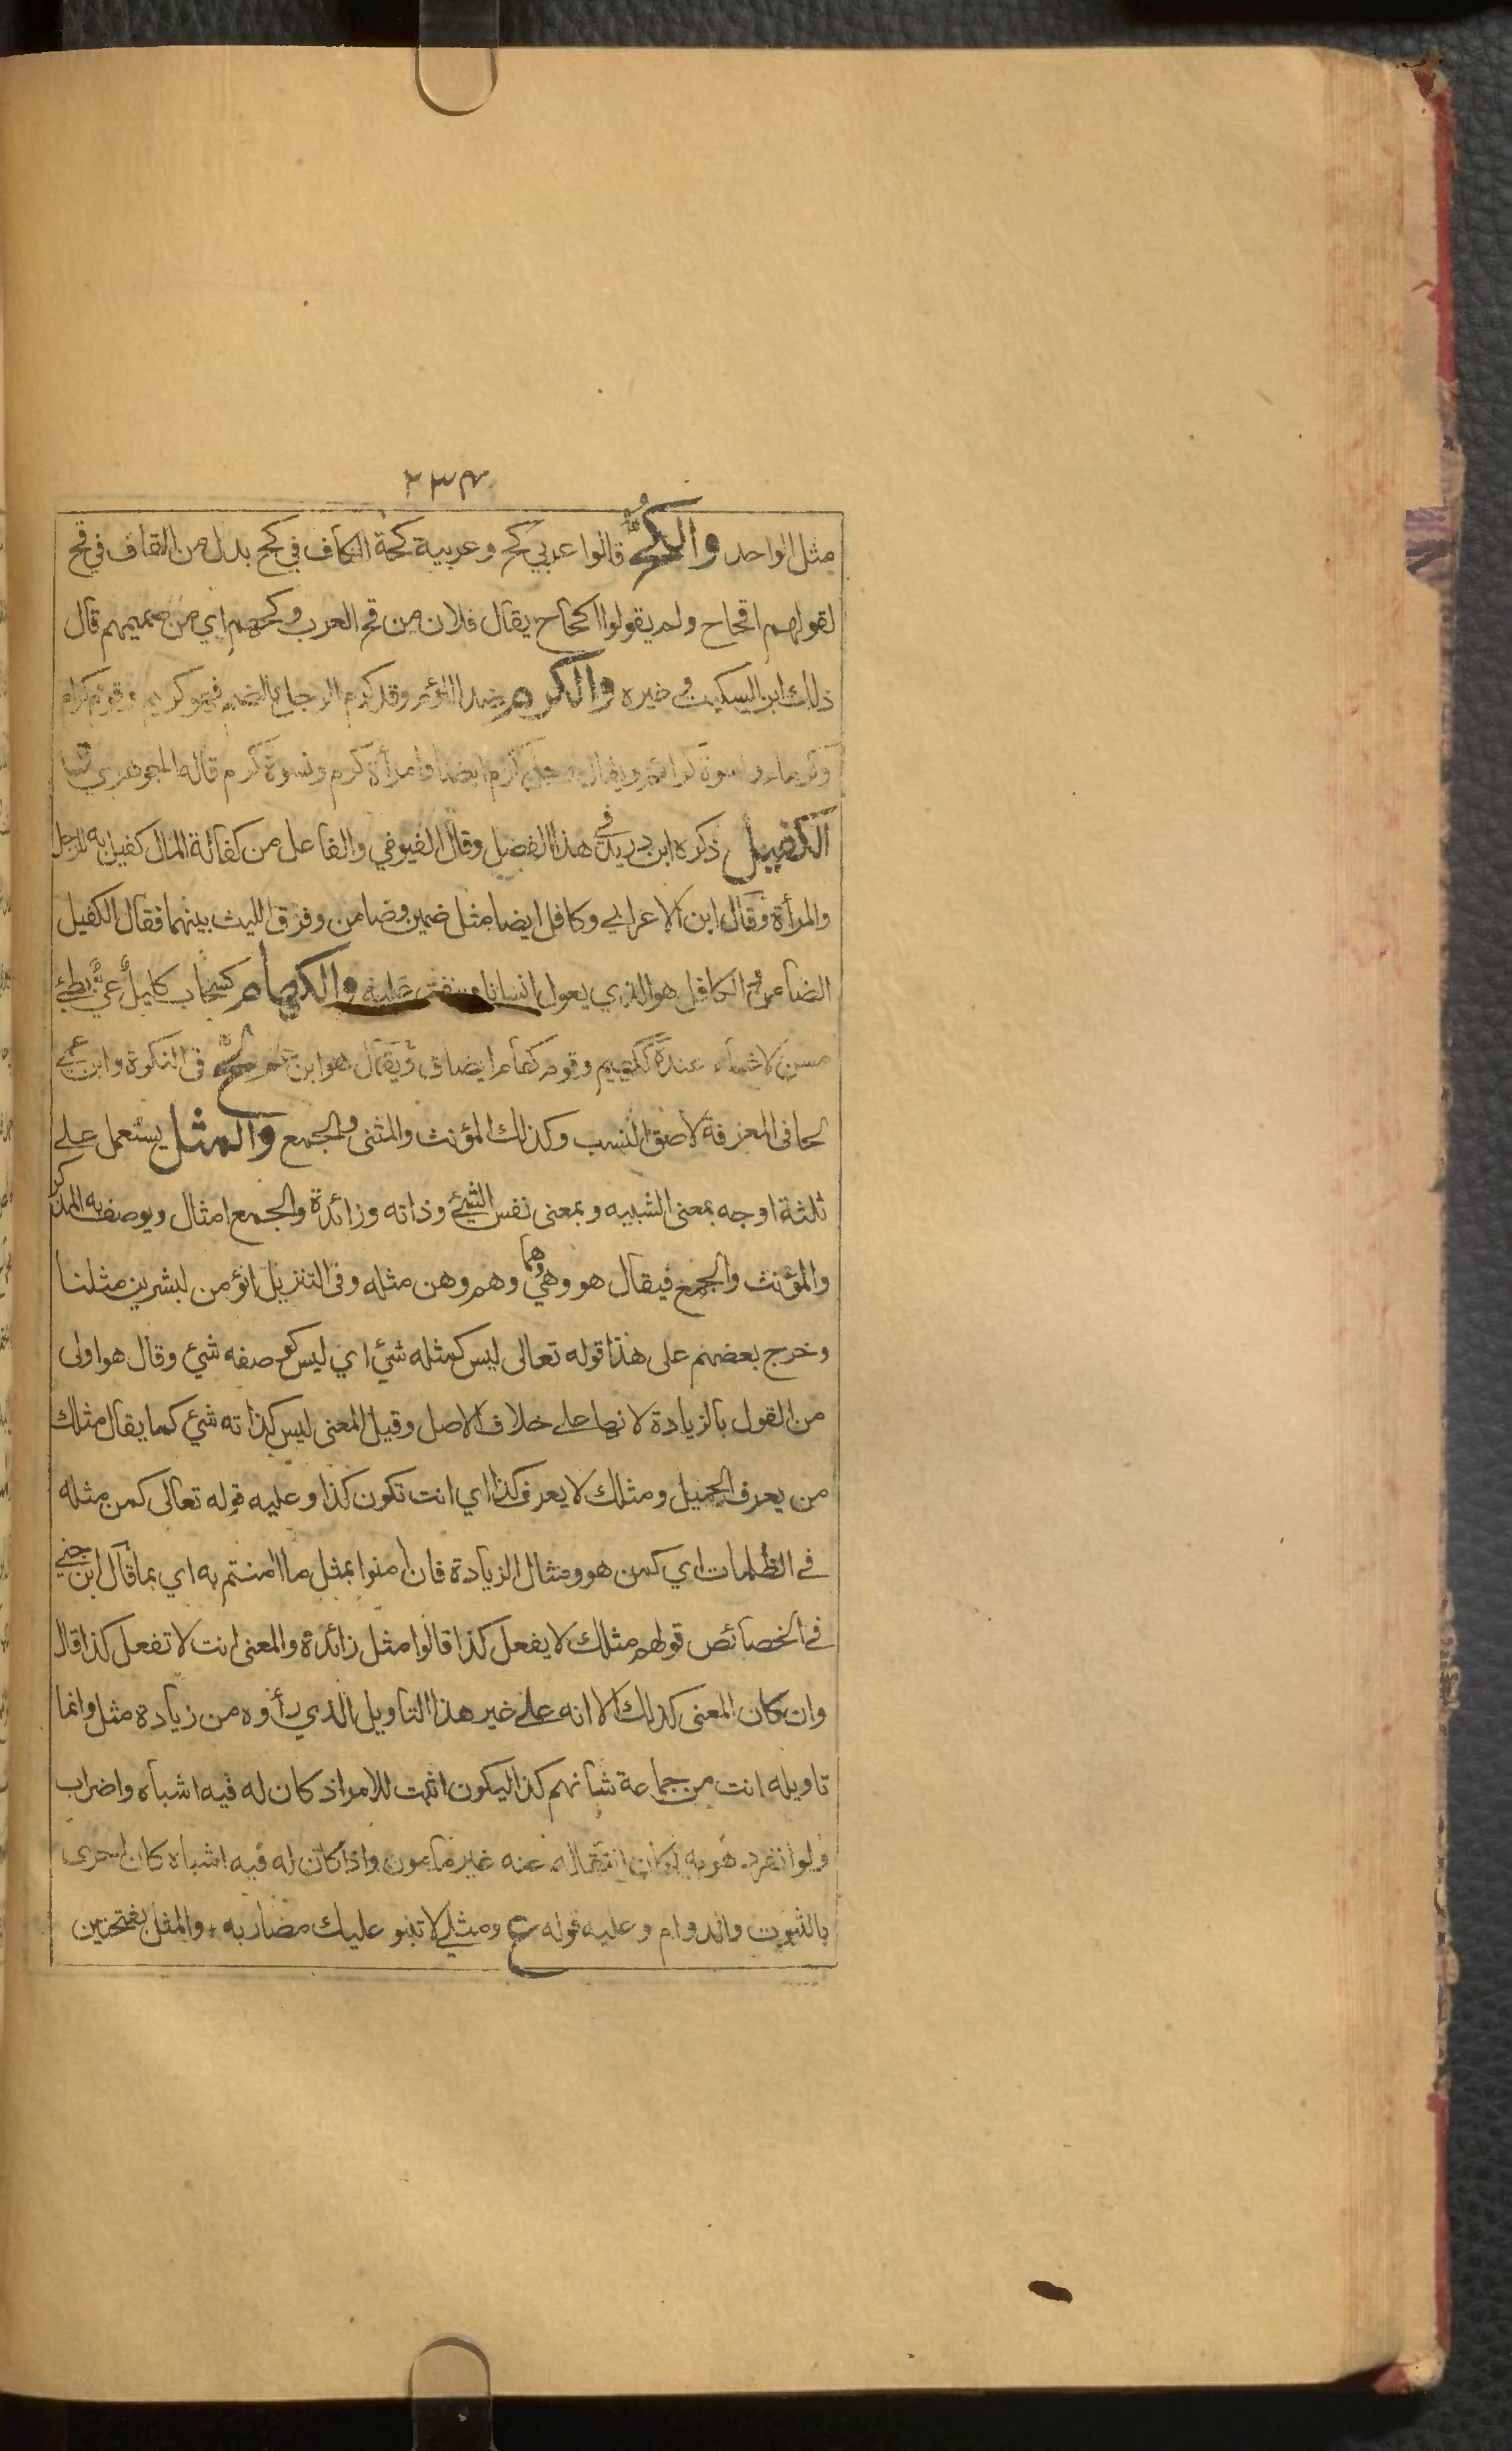 ٢٣٤
مثل الواحد والكُحُّ قالوا عربي كح وعربية كحة الكاف في كح بدل من القاف في قح
لقولهم اقحاح ولم يقولوا اكحاح يقال فلان من قح العرب وكحهم اي من صميمهم قال
ذلك ابن السكيت وغيره والكرم ضد اللؤم وقد كرم الرجل بالضم فهو كريم وقوم كرام
وكرماء ونسوة كرائم ويقال رجل كرم ايضا وامرأة كرم ونسوة كرم قاله الجوهري
الكفيل ذكره ابن دريد في هذا الفصل وقال الفيومي والفاعل من كفالة المال كفيل به للرجل
والمرأة وقال ابن الاعرابي وكافل ايضا مثل ضمين وضامن وفرق الليث بينهما فقال الكفيل
الضامن والكافل هو الذي يعول انسانا وينفق عليه والكهام كسحاب كليل عيّ بطئ
مسن لاغناء عنده ككهيم وقوم كهام ايضا ق ويقال هو ابن عم لحّ في النكرة وابن عمي
لحا في المعرفة لاصق النسب وكذلك المؤنث والمثنى والجمع والمثل يستعمل على
ثلثة اوجه بمعنى الشبيه وبمعنى نفس الشئ وذاته وزائدة والجمع امثال ويوصف به المذكر
والمؤنث والجمع فيقال هو وهي وهما وهم وهن مثله وفى التنزيل انؤمن لبشرين مثلنا
وخرج بعضهم على هذا قوله تعالى ليس كمثله شئ اي ليس كوصفه شئ وقال هو اولى
من القول بالزيادة لانها على خلاف الاصل وقيل المعنى ليس كذاته شئ كما يقال مثلك
من يعرف الجميل ومثلك لا يعرف كذا اي انت تكون كذا وعليه قوله تعالى كمن مثله
في الظلمات اي كمن هو ومثال الزيادة فان امنوا بمثل ما امنتم به اي بما قال ابن جني
في الخصائص قولهم مثلك لا يفعل كذا قالوا مثل زائدة والمعنى انت لا تفعل كذا قال
وان كان المعنى كذلك الا انه على غير هذا التاويل الذي رأوه من زيادة مثل وانما
تاويله انت من جماعة شأنهم كذا ليكون اثبت للامر اذ كان له فيه اشباه واضراب
ولو انفرد هو به لكان انتقاله عنه غير مأمون واذا كان له فيه اشباه كان احرى
بالثبوت والدوام وعليه قوله ع ومثلي لا تنبو عليك مضاربه + والمثل بفتحتين